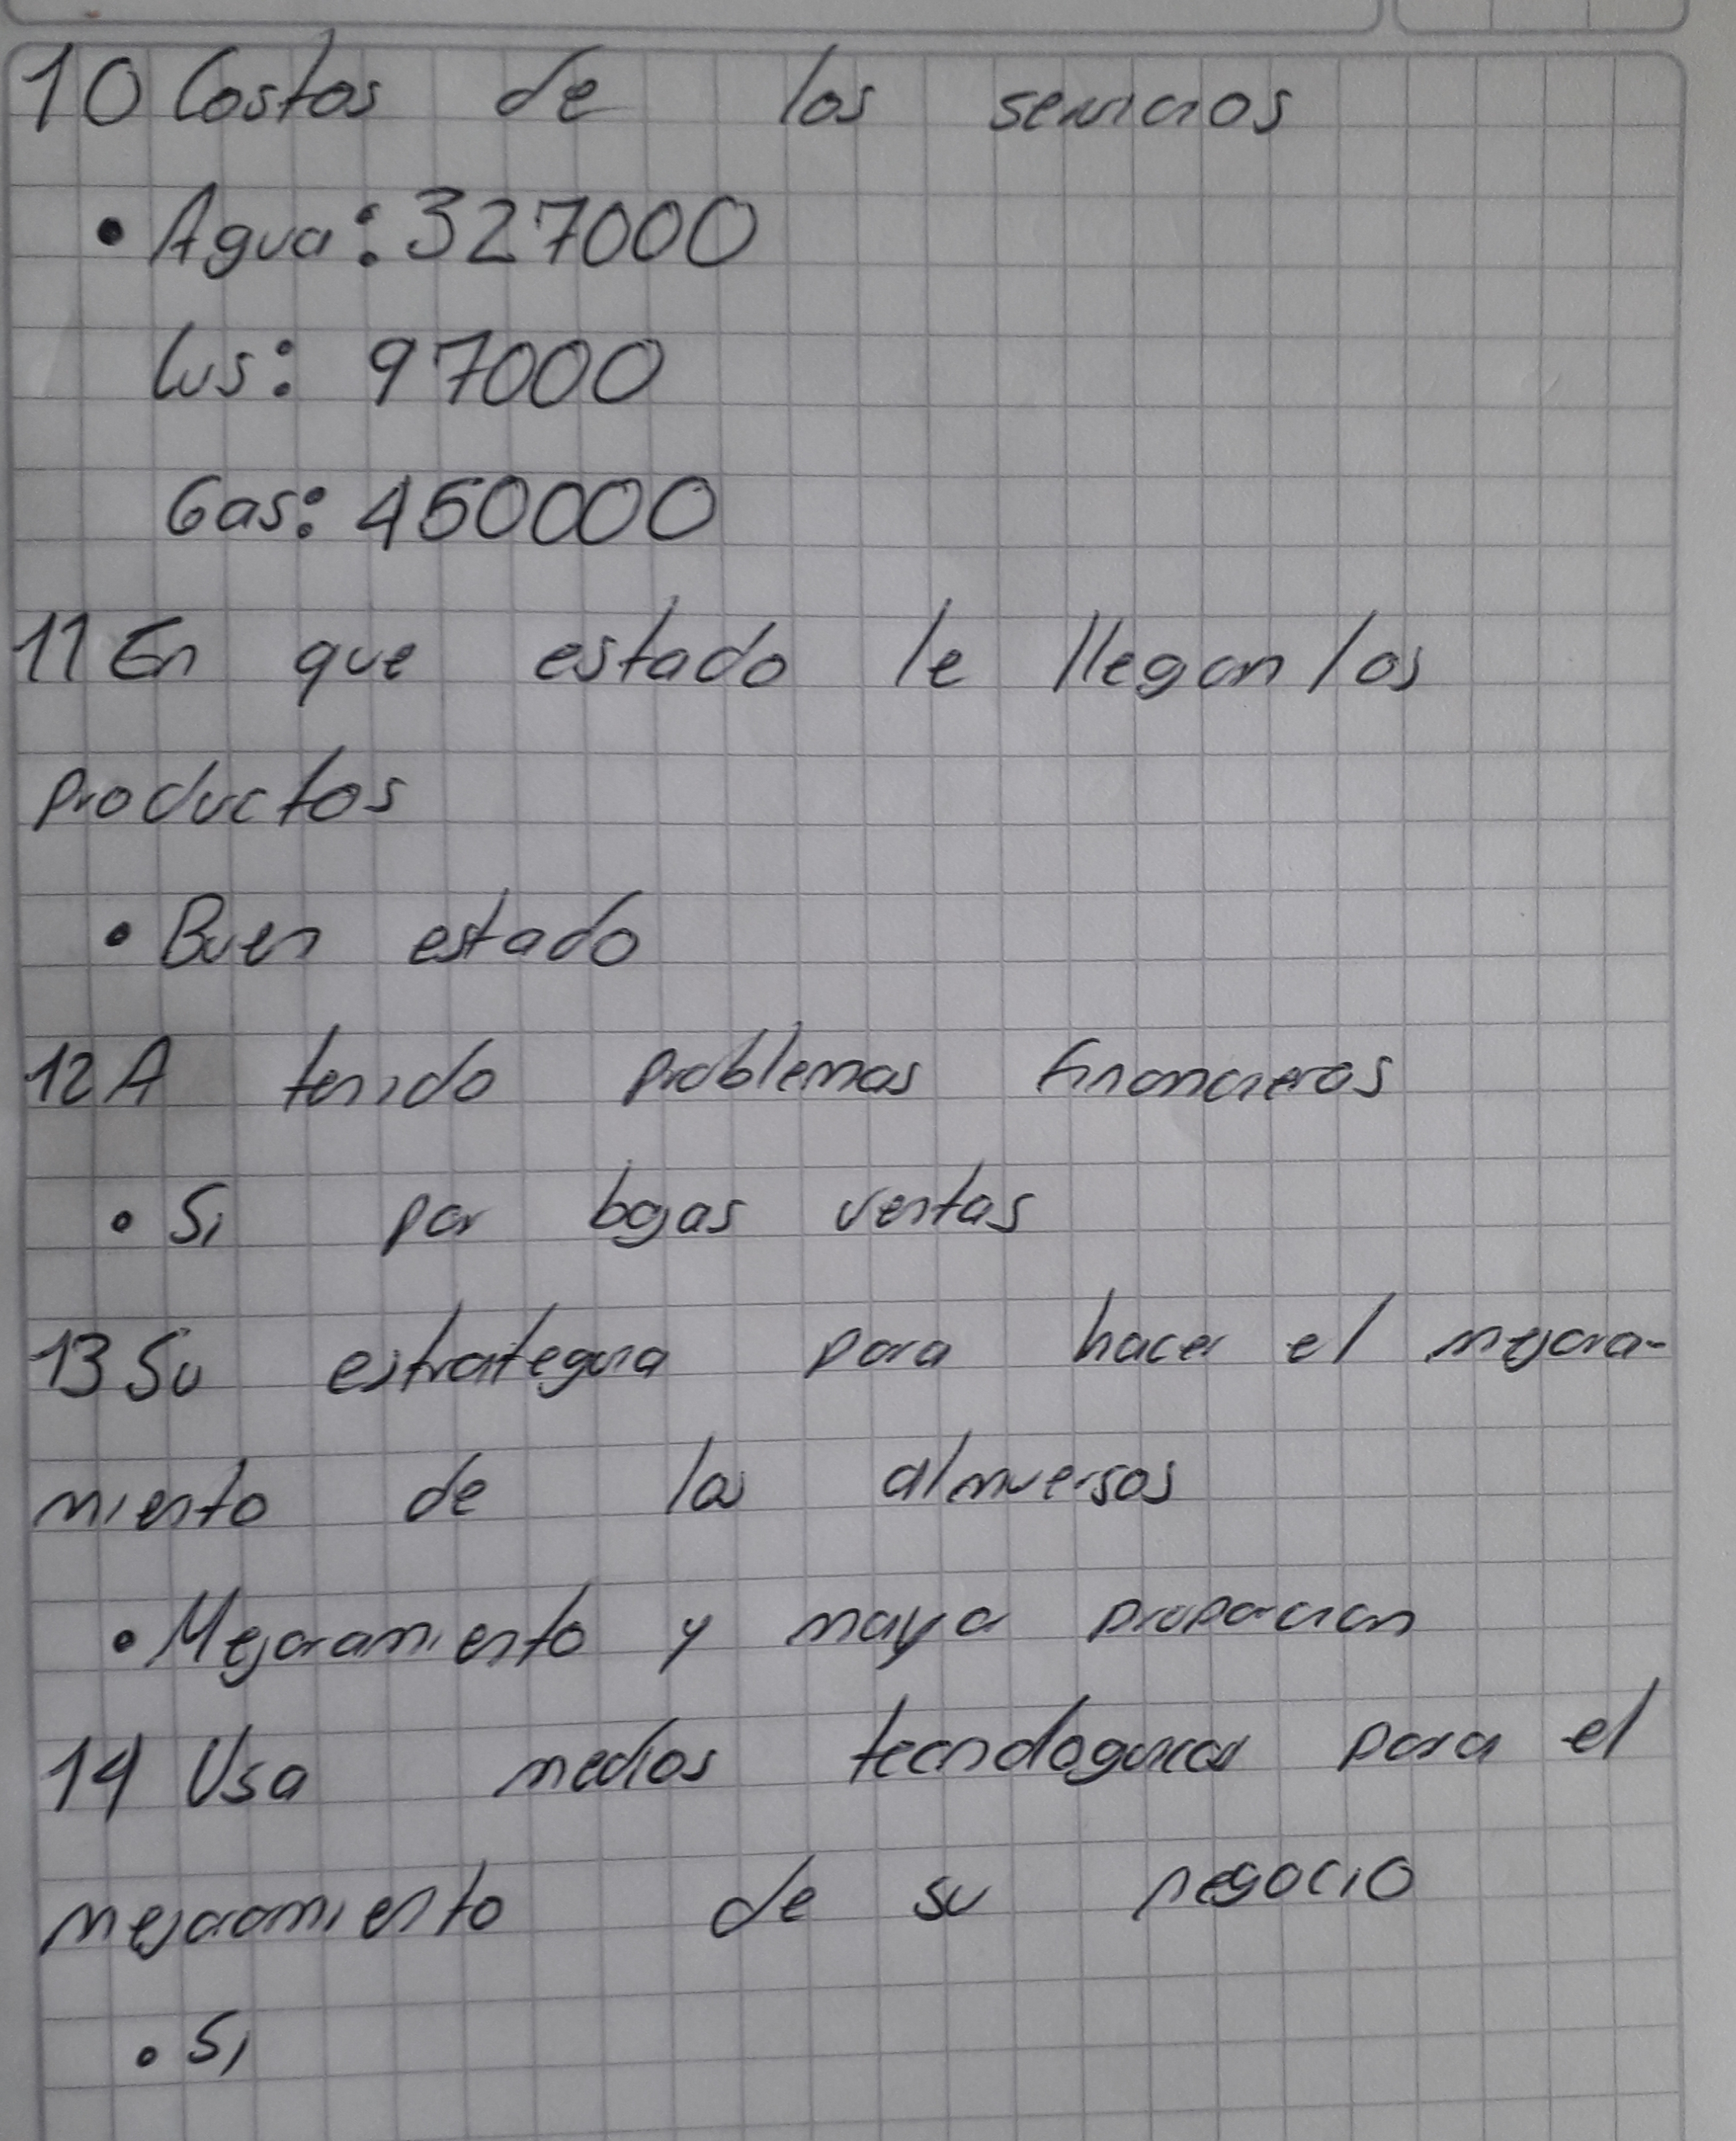 10 Costos de los servicios
• Agua: 327000
lus: 97000
Gas: 450000
11 En que estado le llegan los
productos
• Buen estado
12 A tenido problemas financieros
• Si por bajas ventas
13 Su estrategia para hacer el mejora-
miento de los almuersos
• Mejoramiento y maya proporcion
14 Usa medios tecnologicos para el
mejoramiento de su negocio
• Si